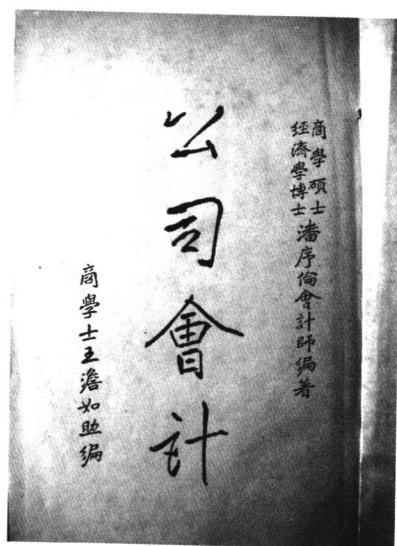 商學碩士
經濟學博士
潘序倫會計師編著
公司會計
商學士王澹如助編